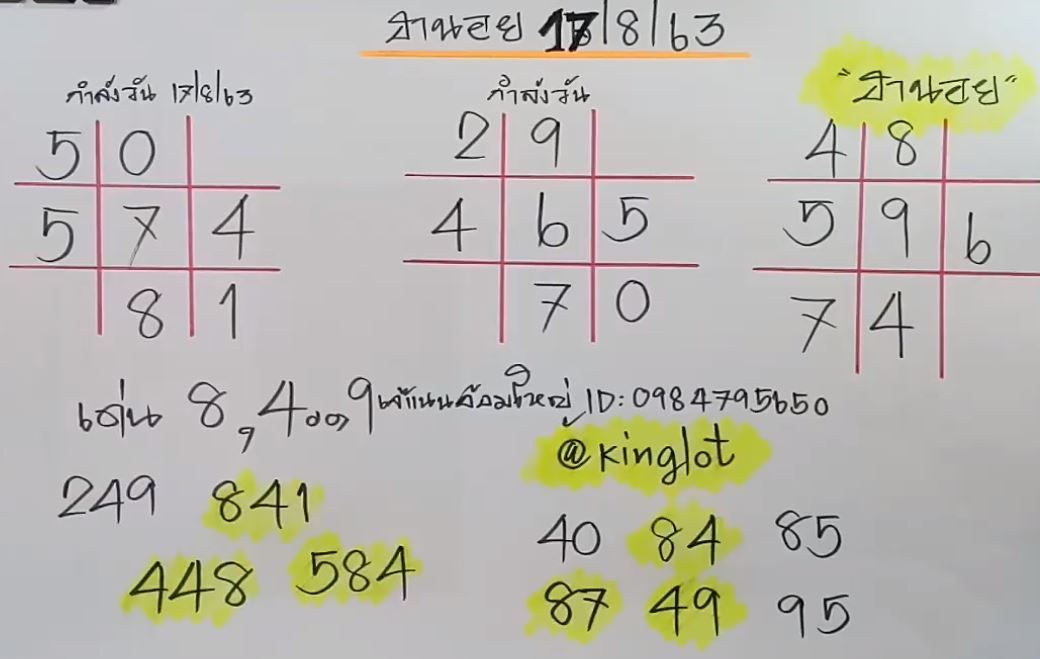 ฮานอย 17/8/63
กำลังวัน 17/8/63
5 0
5 7 4
8 1
กำลังวัน
2 9
4 6 5
7 0
"ฮานอย"
4 8
5 9 6
7 4
เด่น 8,4 ๐๐, 9 ID: 0984795650
@kinglot
249 841
448 584
40 84 85
87 49 95